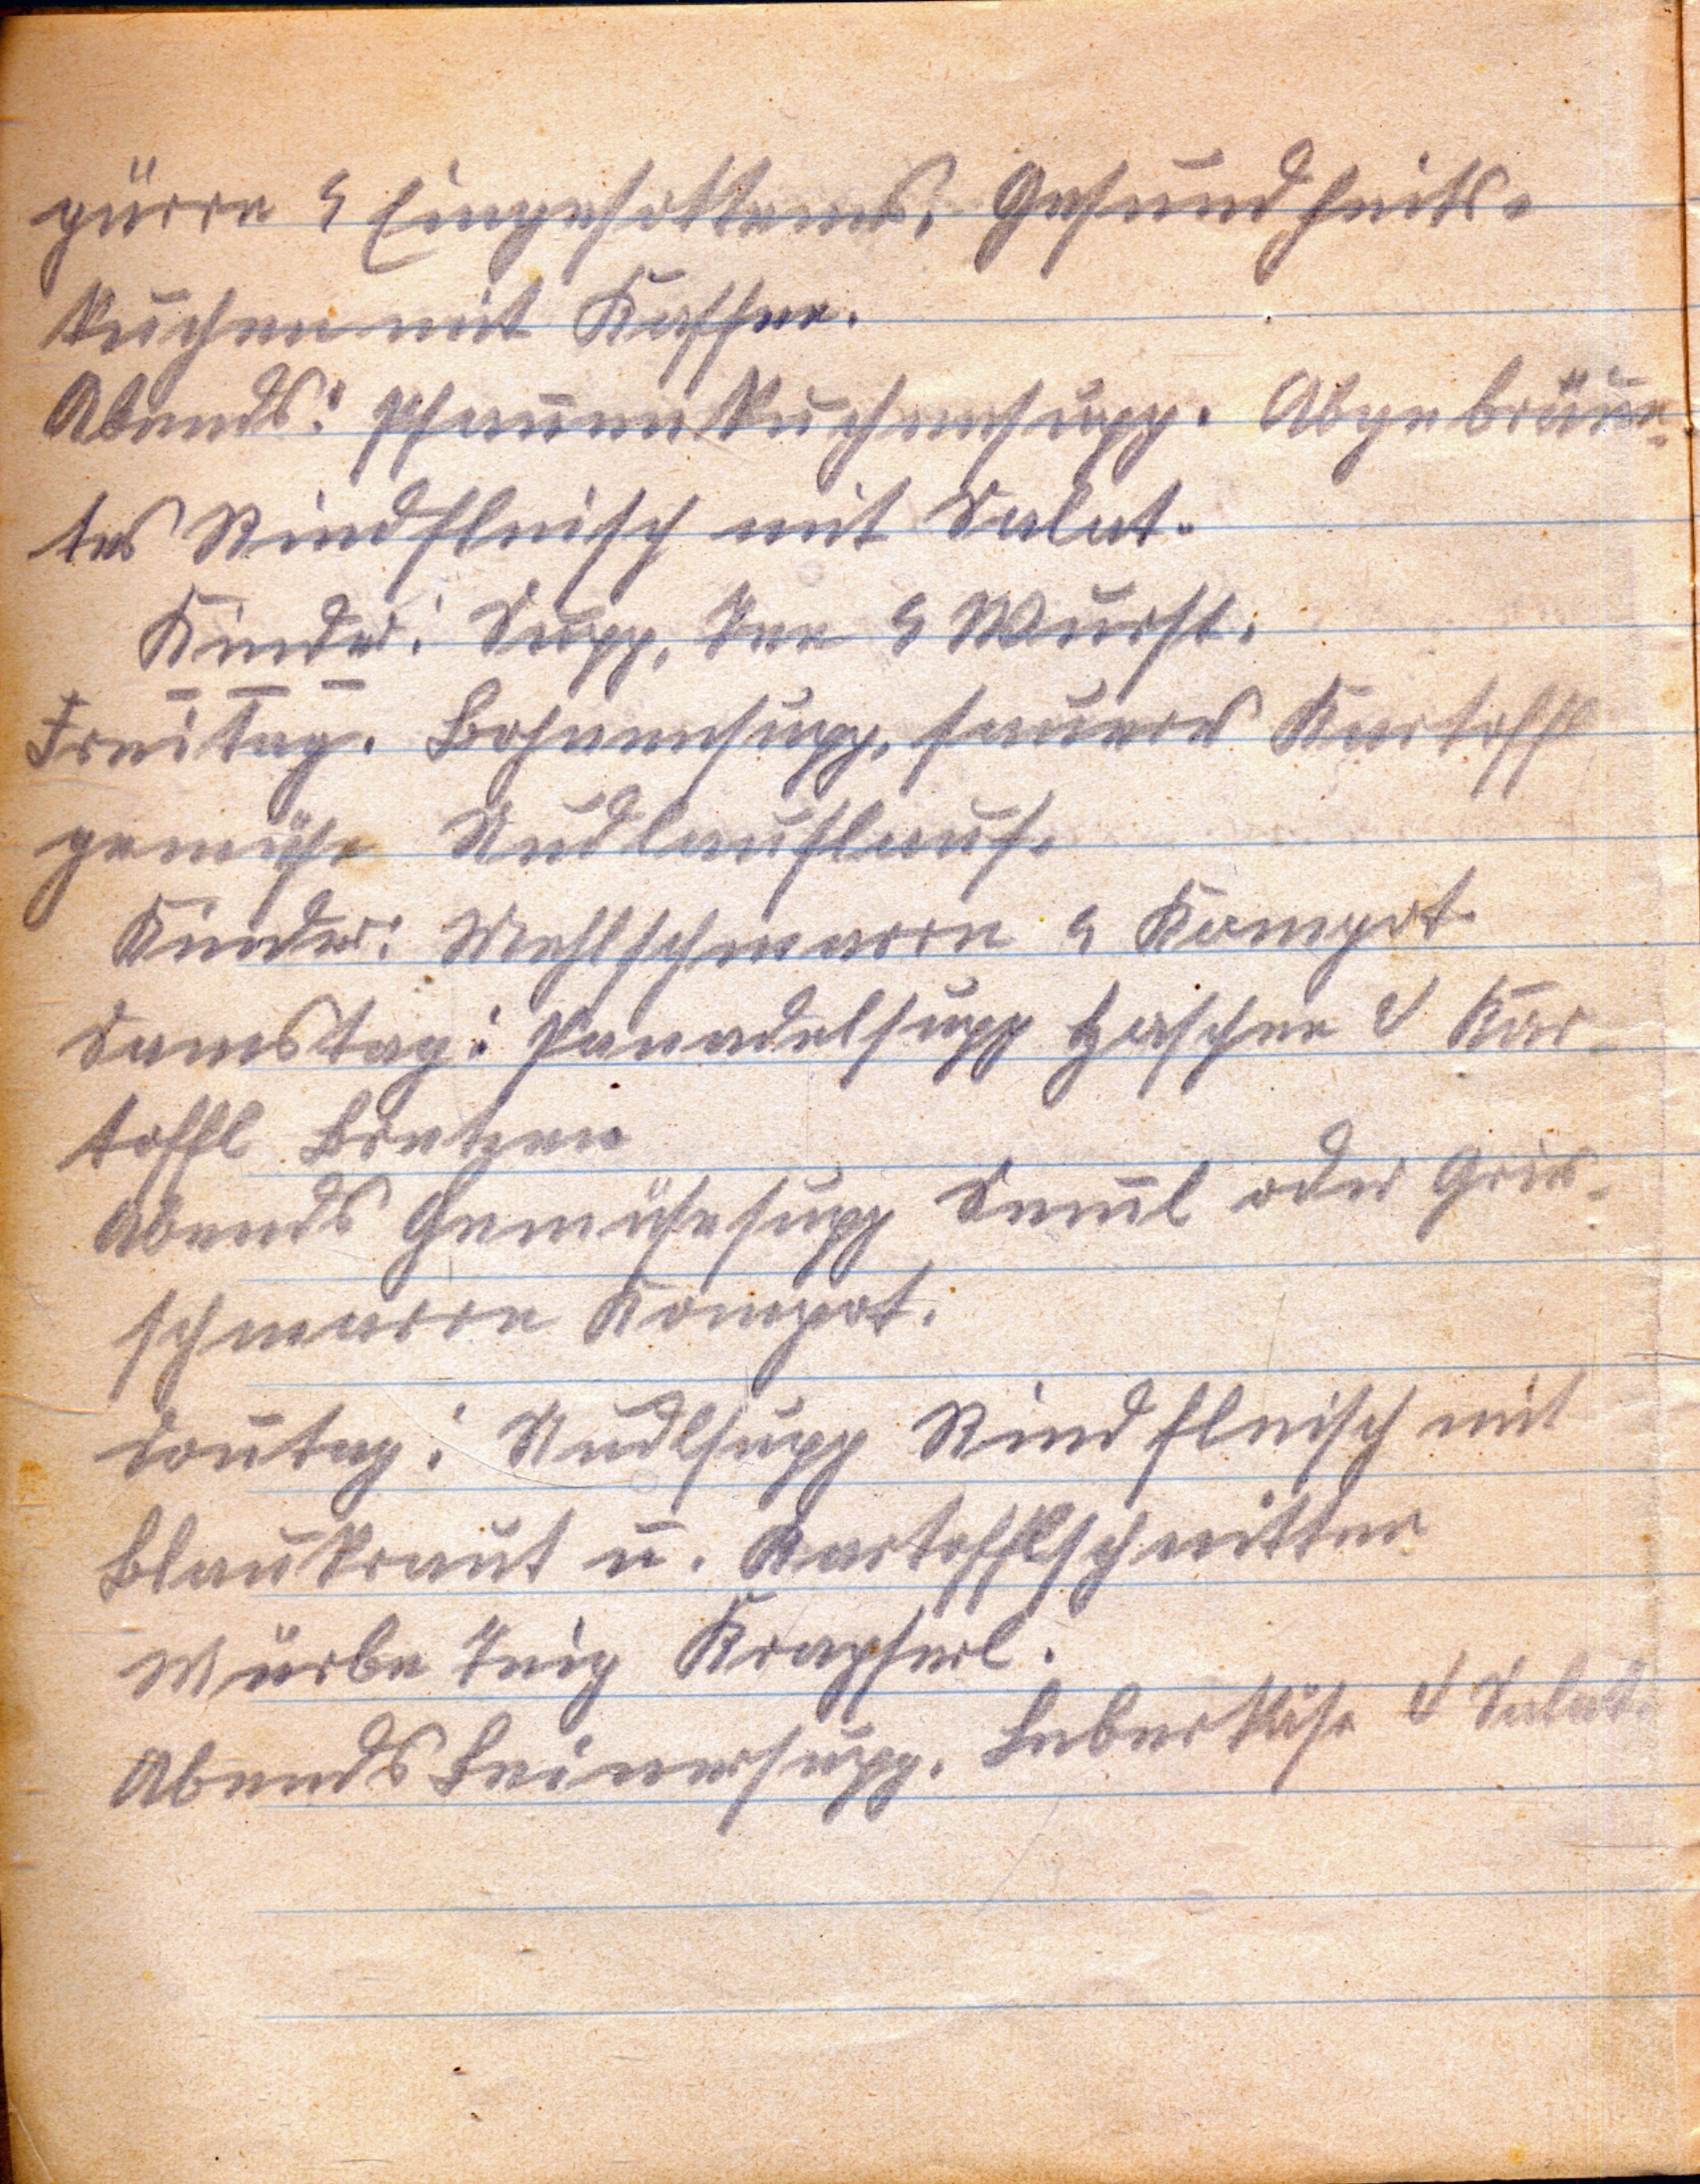 pürre & Eingesottenes. Gesundheits-
kuchen mit Kaffee.
Abends: Pfannenkuchensupp. Abgebräun-
tes Rindfleisch mit Salat.
Kinder: Supp, Tee & Wurst.
Freitag. Bohnensupp, saures Kartoffl
gemüse Nudlauflauf.
Kinder: Mehlschmarrn & Kompot.
Samstag: Panadelsupp Haschee & Kar-
toffl Bretzen
Abends Gemüsesupp Semml oder Gries-
schmarrn Kompot.
Sonntag: Nudlsupp Rindfleisch mit
Blaukraut u. Kartofflschnitten
Mürbe Teig Krapferl.
Abends Beinersupp. Leberkäse & Salat.